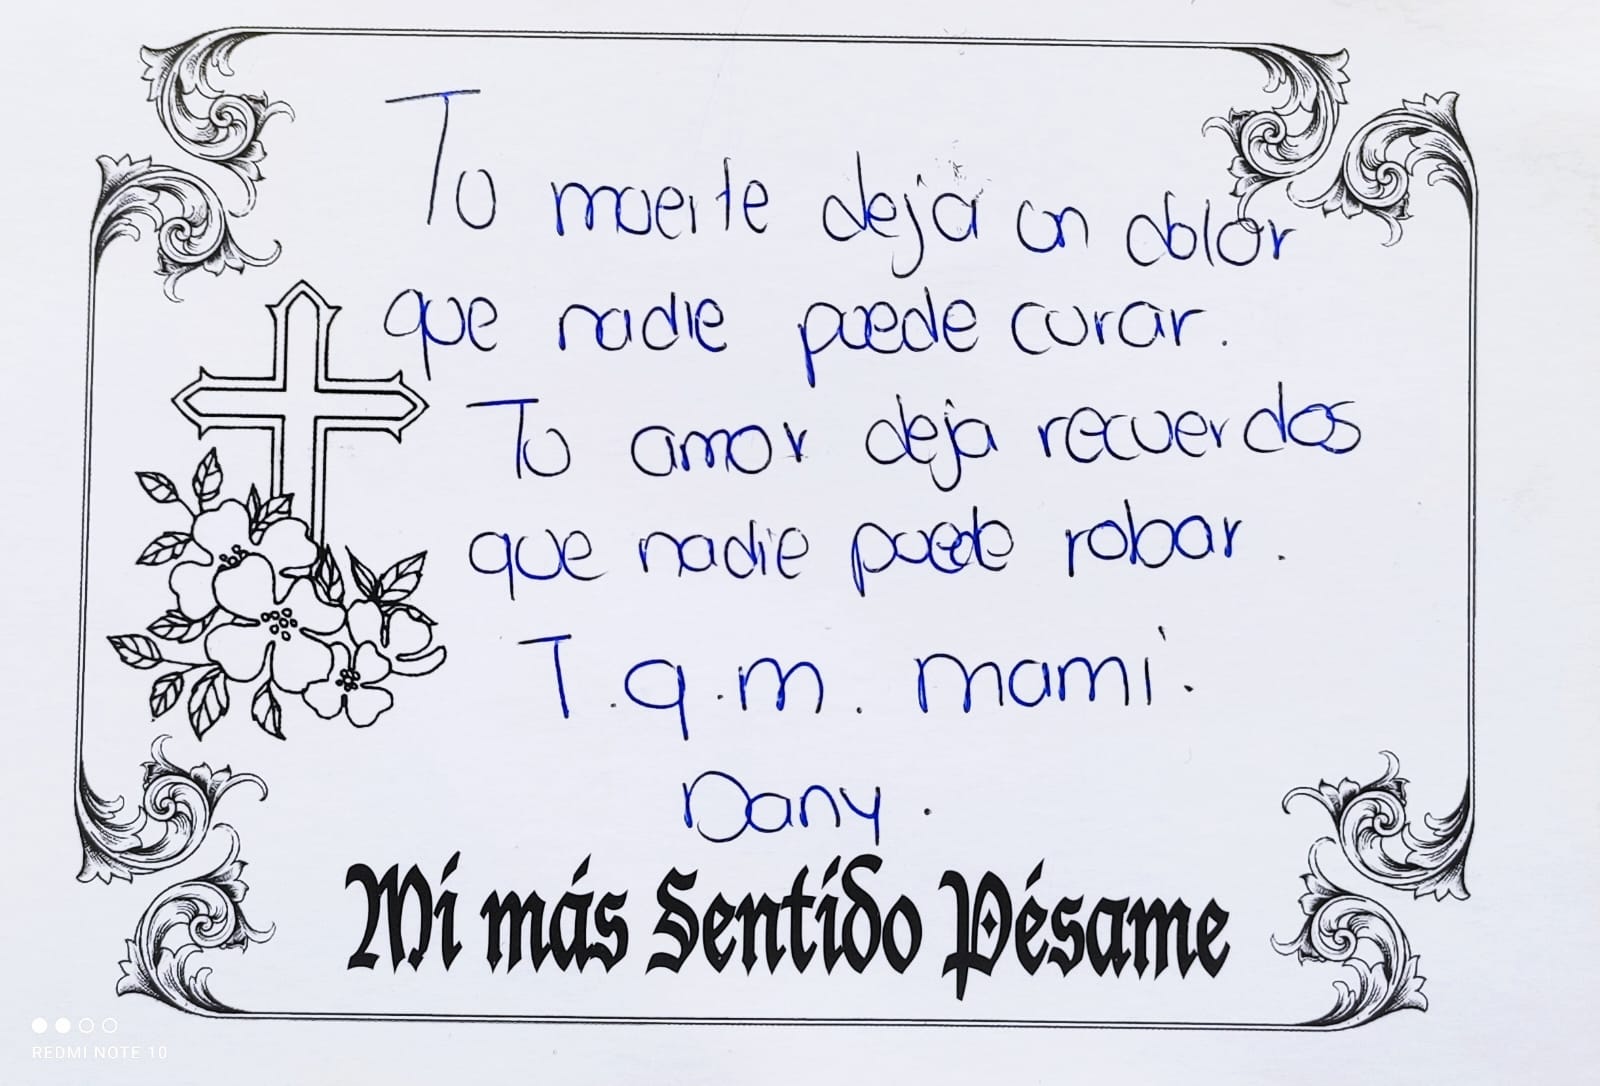 Tu muerte deja un dolor
que nadie puede curar.
Tu amor deja recuerdos
que nadie puede robar.
T.q.m. mami.
Dany.
Mi más Sentido Pésame
REDMI NOTE 10